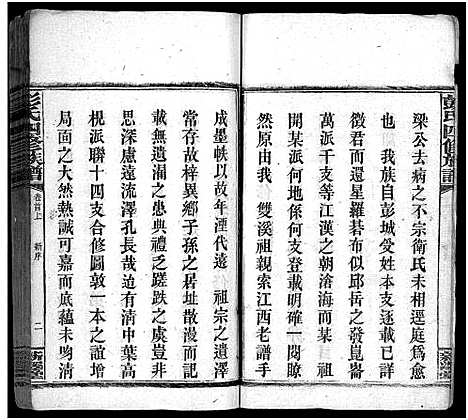 彭氏四修族譜
梁公去病之不宗衛氏未相逕庭爲愈
也　我族自彭城受姓人文蔚起載已詳
徵君而還星羅碁布似邱岳之發崑崙
萬派千支等江漢之朝滄海而某　祖
開某派何支某地何支登載明晰一閱瞭
然原由我　雙溪祖親索江西老譜手
成墨帙以故年湮代遠　祖宗之遺澤
常存故梓異鄉子孫之居址散漫而記
載無遺漏之患典禮之蹉跌之虞豈非
思深慮遠流澤孔長哉迨至有清中葉高
梘派聯十四支合修圖敦一本之誼增
局面之大然熱誠可嘉而底蘊未吻清
彭氏四修族譜
卷首上
新序
二